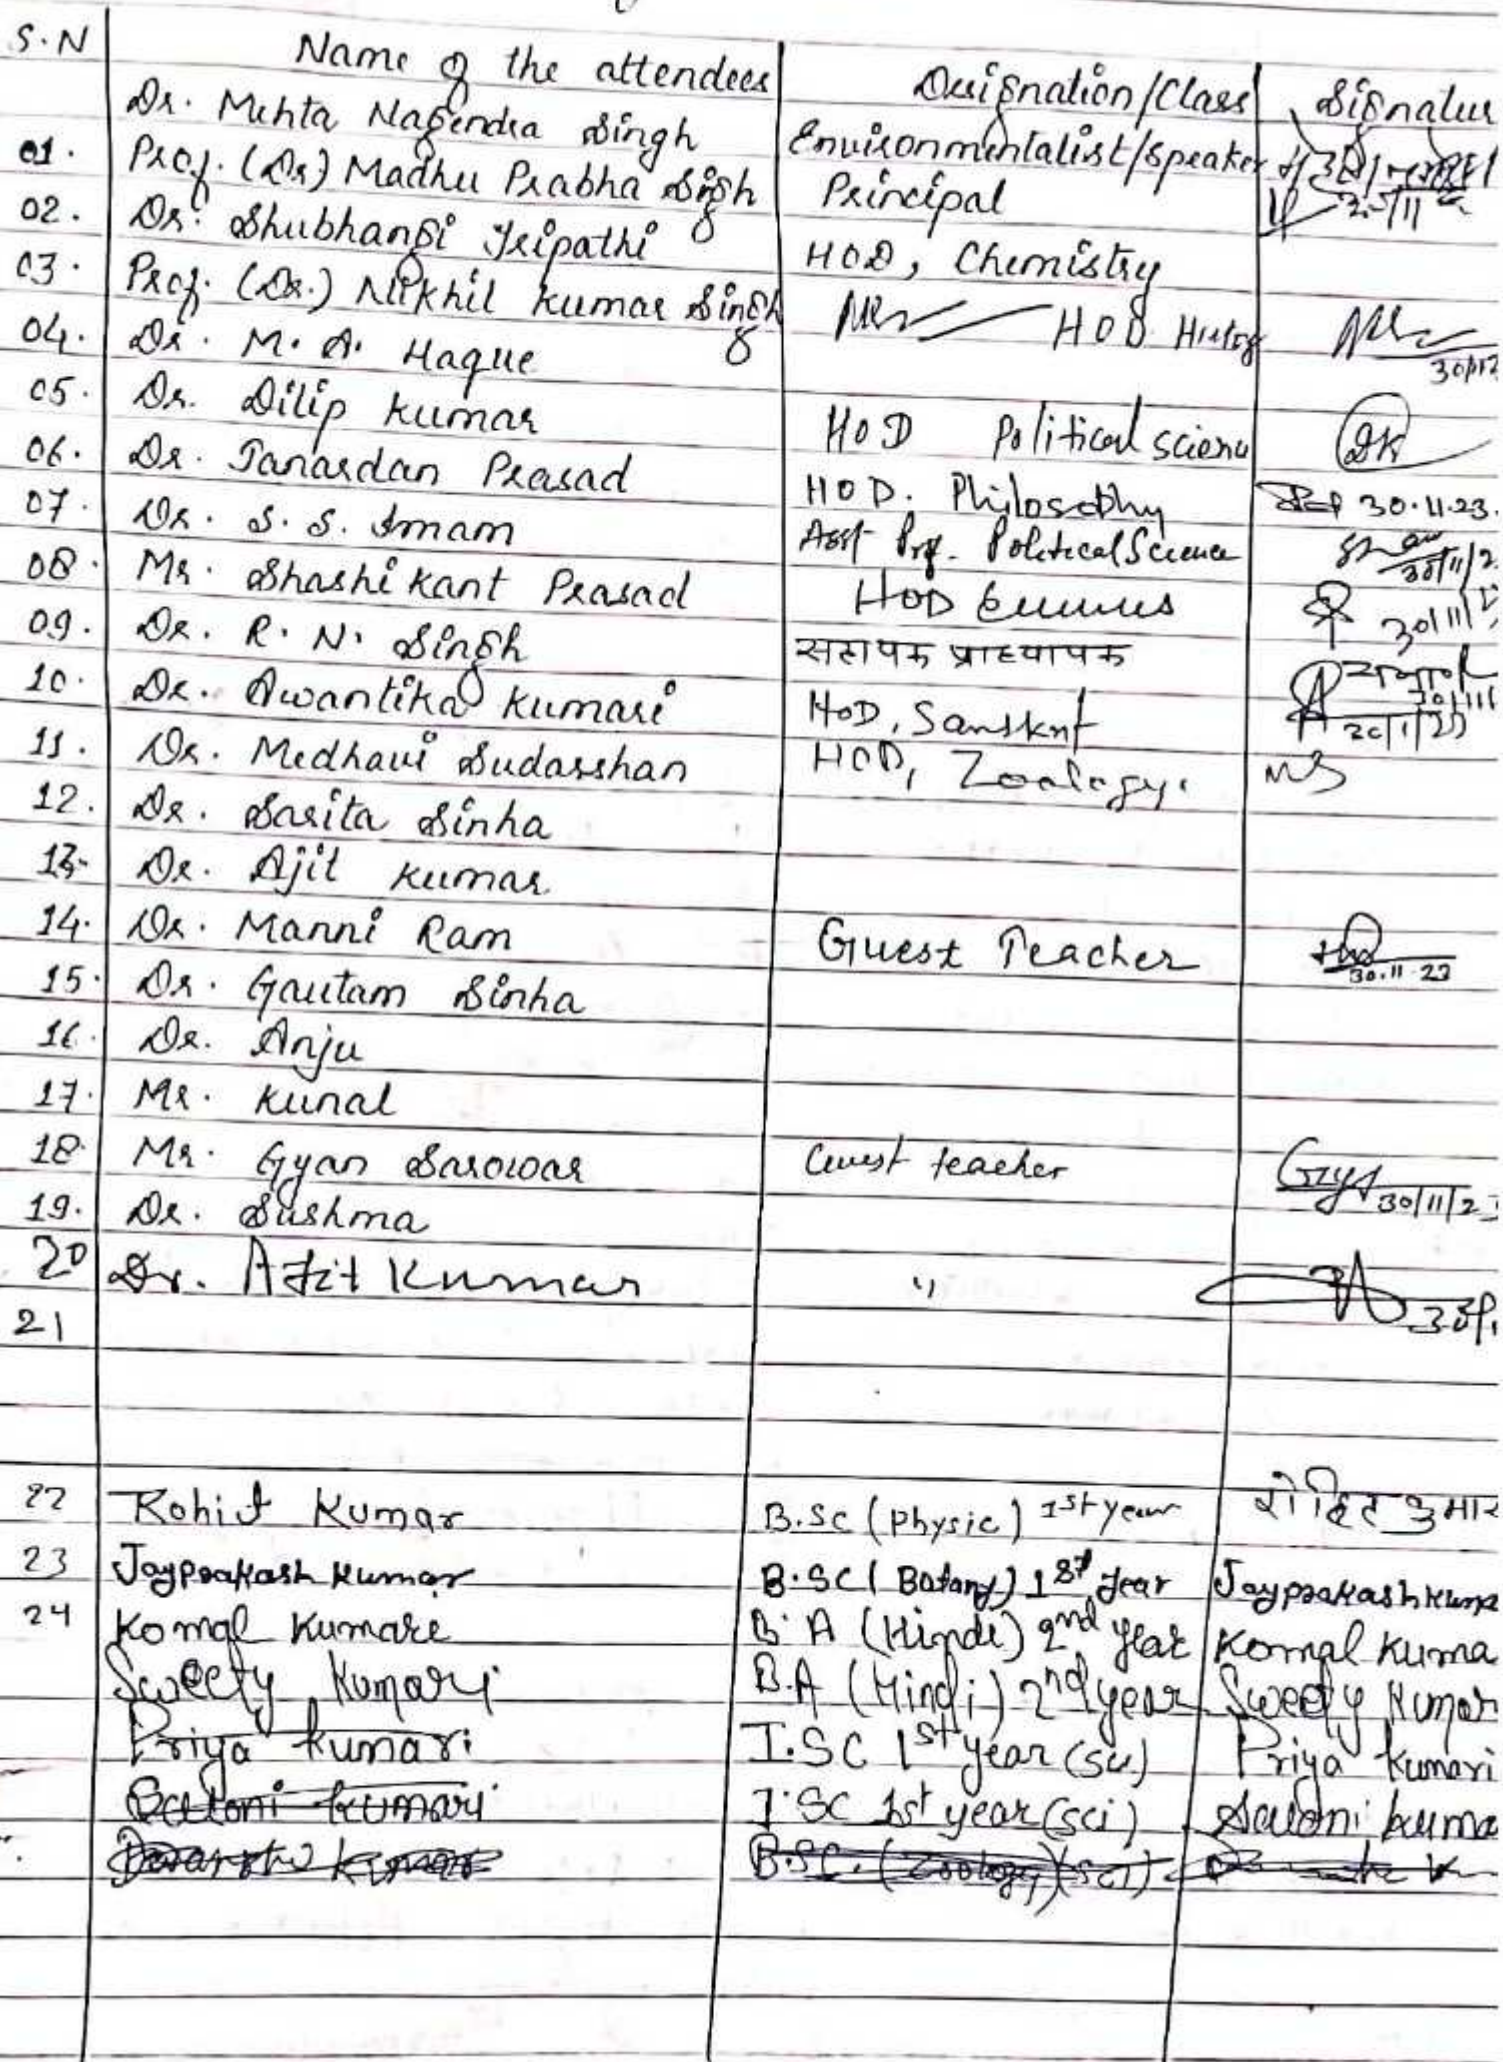 S.N Name of the attendees Designation/Class Signatur
Dr. Mehta Nagendra Singh Environmentalist/Speaker
01. Prof. (Dr) Madhu Prabha Singh Principal
02. Dr. Shubhangi Tripathi HOD, Chemistry
03. Prof. (Dr.) Nikhil Kumar Singh HOD
04. Dr. M. A. Haque
05. Dr. Dilip Kumar HOD Political Scienc DK
06. Dr. Janardan Prasad HOD. Philosophy 30.11.23.
07. Dr. S. S. Imam Asst Prof. Political Science 30/11/2
08. Mr. Shashi Kant Prasad HOD 30/11/
09. Dr. R. N. Singh सहायक प्राध्यापक
10. Dr. Awantika Kumari HOD, Sanskrit
11. Dr. Medhavi Sudarshan HOD, Zoology. MS
12. Dr. Sarita Sinha
13. Dr. Ajit Kumar
14. Dr. Manni Ram Guest Teacher 30.11.23
15. Dr. Gautam Sinha
16. Dr. Anju
17. Mr. Kunal
18. Mr. Gyan Sarowar Guest teacher 30/11/23
19. Dr. Sushma
20 Dr. Ajit Kumar "
21
22 Rohit Kumar B.Sc (Physic) 1st year रोहित कुमार
23 Jayprakash Kumar B.SC (Botany) 1st year Jayprakash Kuma
24 Komal Kumari B.A (Hindi) 2nd year Komal Kuma
Sweety Kumari B.A (Hindi) 2nd year Sweety Kumar
Priya Kumari I.SC 1st year (sci) Priya Kumari
Saloni Kumari I.SC 1st year (sci) Saloni Kuma
B.SC. (Zoology) (sci)